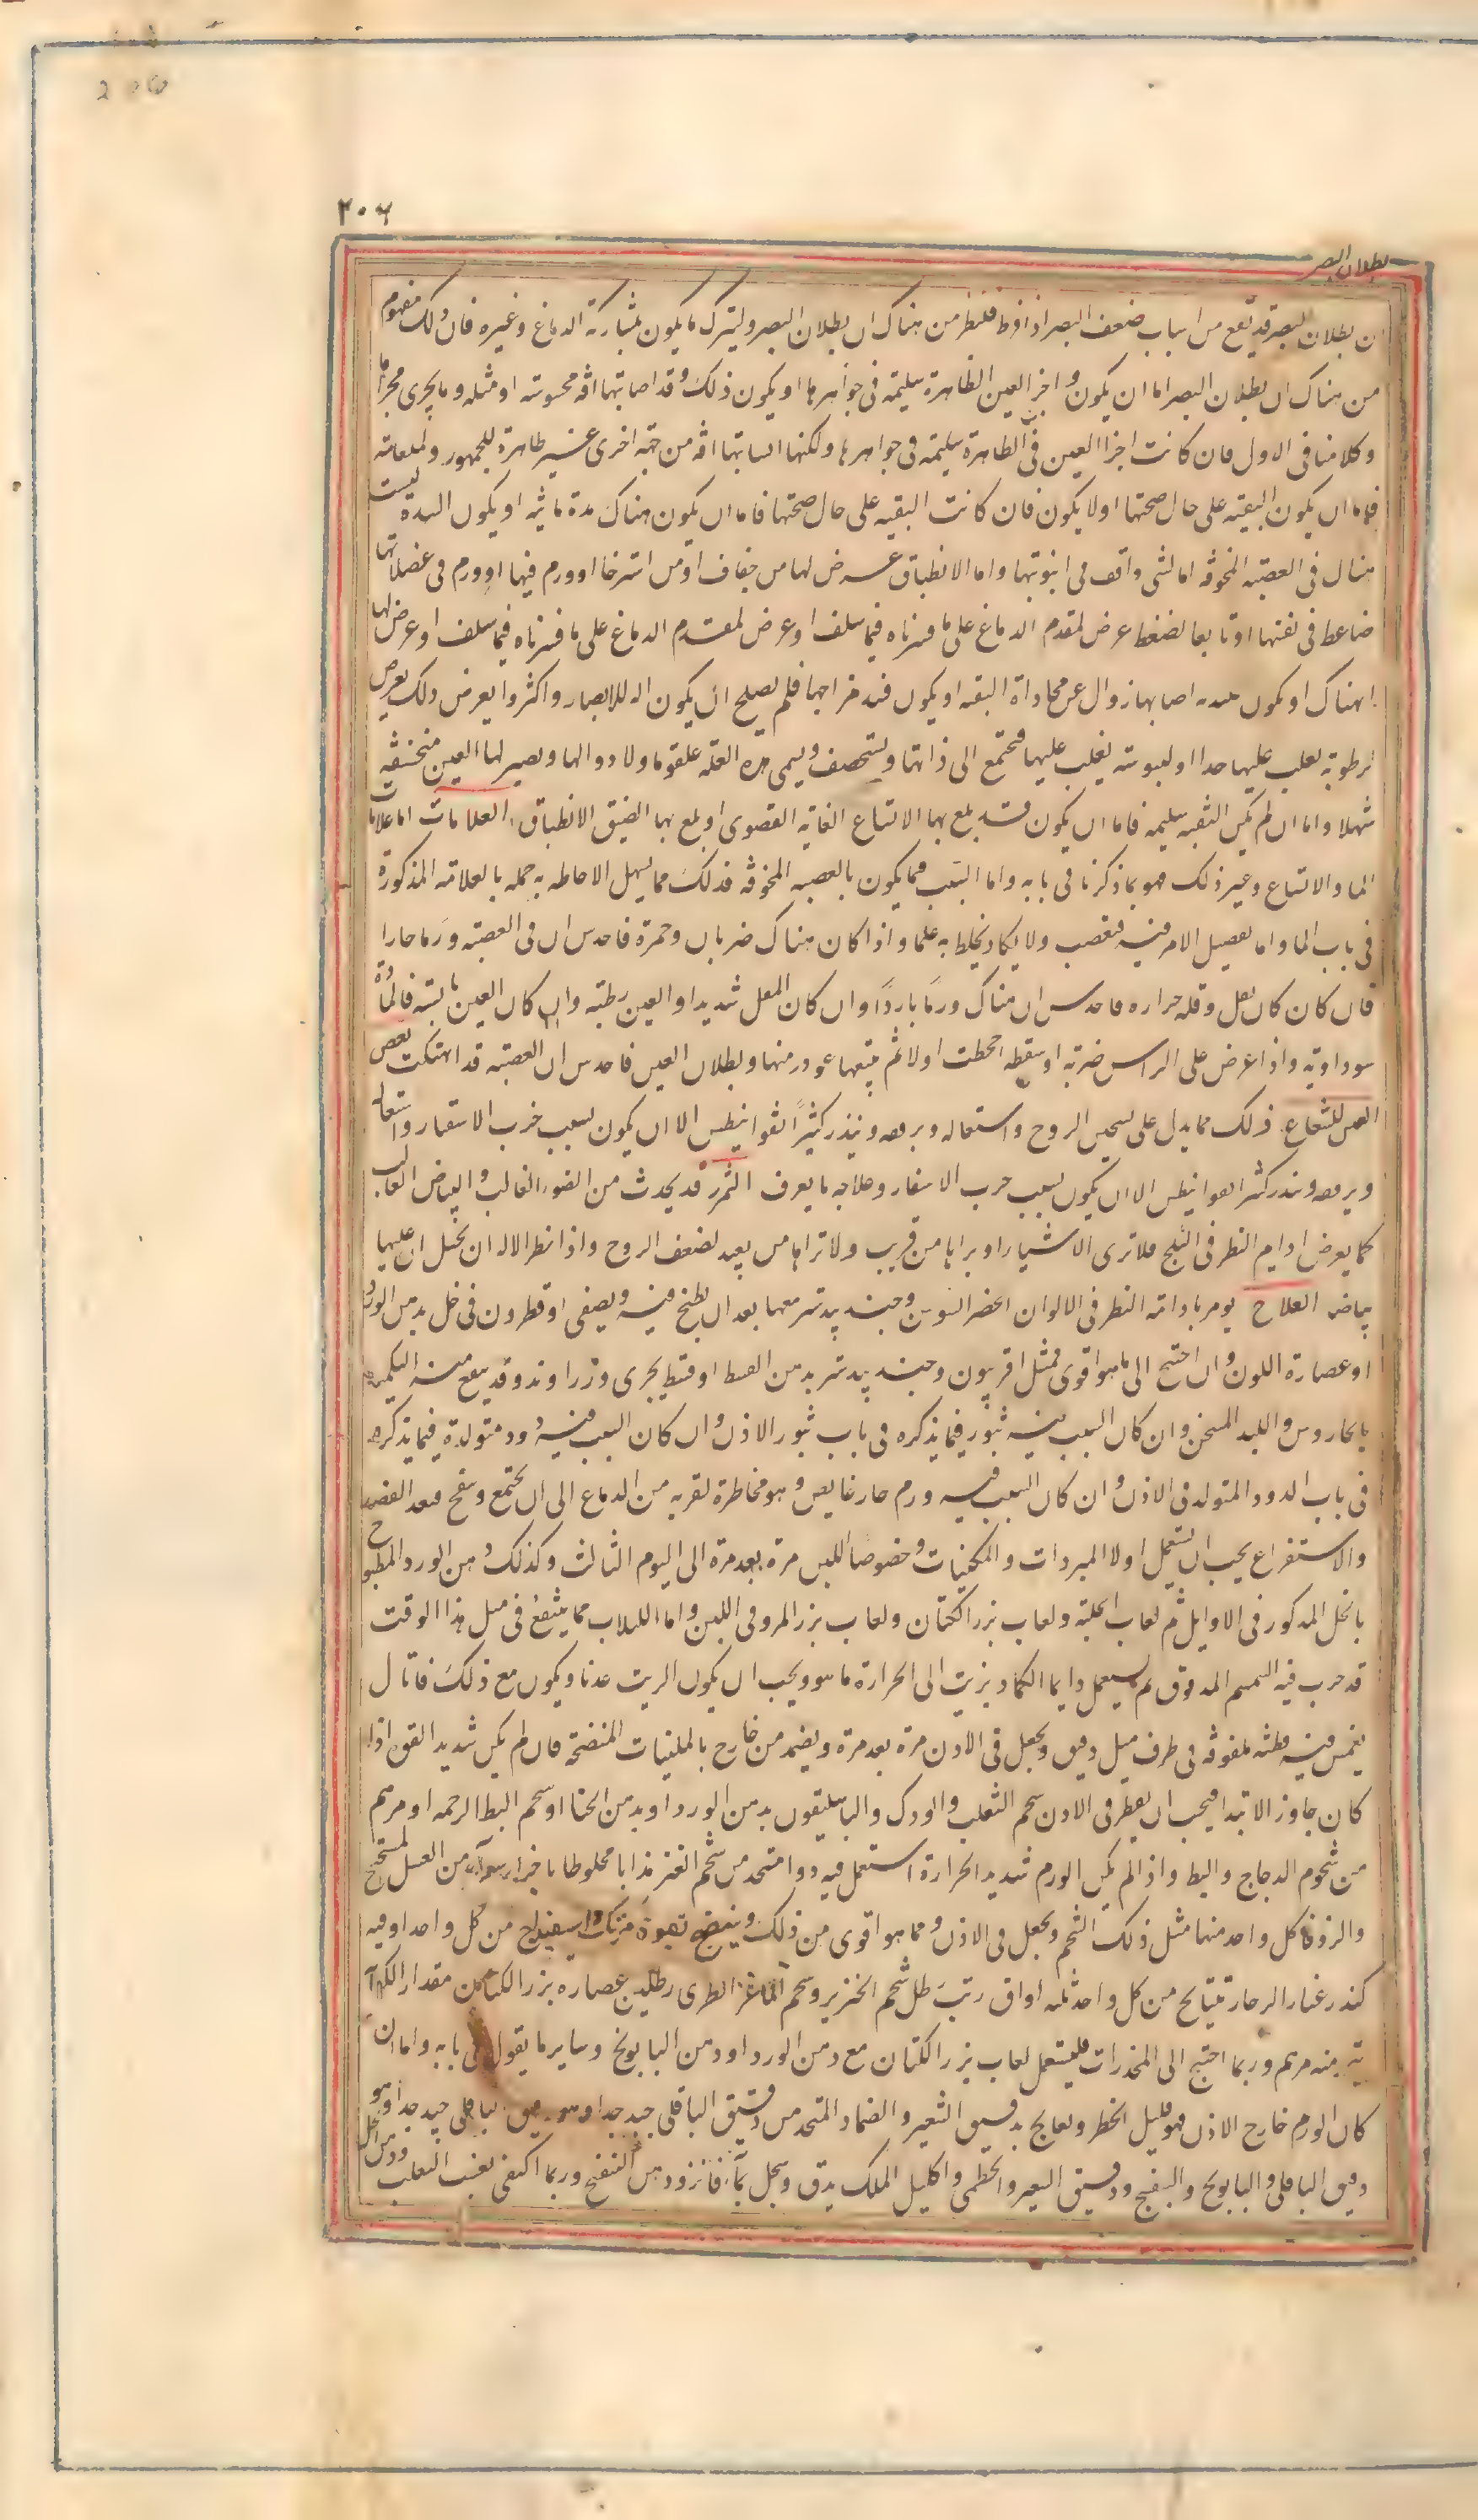 206
٢٠٦
بطلان البصر
ان بطلان البصر قد يقع من اسباب ضعف البصر اذا افرط فلينظر من هناك ان بطلان البصر وليترك ما يكون بمشاركة الدماغ وغيره فان ذلك مفهوم
من هناك ان بطلان البصر اما ان يكون واجزا العين الظاهرة سليمة فى جواهرها او يكون ذلك وقد اصابتها افة محسوسة او مثله وما يجرى مجراها
وكلامنا فى الاول فان كانت اجزا العين فى الظاهرة سليمة فى جواهرها ولكنها اصابتها افة من جهة اخرى غير ظاهرة للجمهور وللعامة
فاما ان يكون الثقبة على حال صحتها اولا يكون فان كانت الثقبة على حال صحتها فاما ان يكون هناك سدة مائية او يكون السدة ليست
هناك فى العصبة المجوفة اما لشى واقف فى انبوبتها واما الانطباق عرض لها من جفاف او من استرخا او ورم فيها او ورم فى عضلاتها
ضاغط فى نفسها او تابعا لضغط عرض لمقدم الدماغ على ما فسرناه فيما سلف او عرض لمقدم الدماغ على ما فسرناه فيما سلف او عرض لها
هناك او يكون اصابها زوال عن محاذاة الثقبة او يكون فسد مزاجها فلم يصلح ان يكون الة للابصار واكثر ما يعرض ذلك يعرض
لرطوبة تغلب عليها جدا او ليبوسة يغلب عليها فتجتمع الى ذاتها وتستحصف ويسمى هذه العلة علقوما ولا دوا لها ويصير لها العين منخسفة
شهلا واما ان لم تكن الثقبة سليمة فاما ان يكون قد بلغ بها الاتساع الغاية القصوى او بلغ بها الضيق الانطباق العلامات اما علامات
الما والاتساع وغير ذلك فهو بما ذكرنا فى بابه واما السبب فيما يكون بالعصبة المجوفة فذلك مما يسهل الاحاطة به جملة بالعلامة المذكورة
فى باب الما واما تفصيل الامر فيه فصعب ولا يكاد يحاط به علما واذا كان هناك ضربان وحمرة فاحدس ان فى العصبة ورما حارا
فان كان كان ثقل وقلة حرارة فاحدس ان هناك ورما باردا وان كان الثقل شديدا والعين رطبة وان كان العين يابسة فالمادة
سوداوية واذا عرض على الراس ضربة او سقطة اجحظت اولا ثم يتبعها غور منها وبطلان العين فاحدس ان العصبة قد انهتكت بعض
للشعاع ذلك مما يدل على الروح واستحالة ويرققه وينذر كثيرا بقوانيطس الا ان يكون بسبب حرب الاسفار واتعاب
ويرققه وينذر كثيرا بقوانيطس الا ان يكون بسبب حرب الاسفار وعلاجه ما يعرف القمر قد يحدث من الضوء الغالب والبياض الغالب
كما يعرض اذا اديم النظر فى الثلج فلا ترى الاشياء او يراها من قريب ولا تراها من بعيد لضعف الروح واذا نظر الى الالوان تخيل ان عليها
بياضا العلاج يومر بادامة النظر فى الالوان الخضر السوسن وجندبيدستر معها بعد ان يطبخ فيه ويصفى او قطرون فى خل بدهن الورد
او عصارة اللون وان احتيج الى ما هو اقوى فمثل افربيون وجندبيدستر بدهن القسط او قسط بحرى وزراوند وقد ينفع منه التكميد
بالجاورس واللبد المسخن وان كان السبب فيه بثور فيما يذكره فى باب بثور الاذن وان كان السبب فيه دود متولدة فيما يذكره
فى باب الدود المتولد فى الاذن وان كان السبب فيه ورم حار غايص وهو مخاطرة لقربه من الدماغ الى ان يجتمع ويتقيح فبعد الفصد
والاستفراغ يجب ان تستعمل اولا المبردات والمسكنات وخصوصا اللبن مرة بعد مرة الى اليوم الثالث وكذلك دهن الورد المطبوخ
بالخل المذكور فى الاوايل ثم لعاب الحلبة ولعاب بزر الكتان ولعاب بزر المرو فى اللبن واما اللبلاب مما ينفع فى مثل هذا الوقت
قد جرب فيه السمسم المدقوق ثم يستعمل دايما الكماد بزيت الى الحرارة ما هو ويجب ان يكون الزيت عذبا ويكون مع ذلك فاتال
يغمس فيه قطنة ملفوفة فى طرف ميل دقيق ويجعل فى الاذن مرة بعد مرة ويضمد من خارج بالملينات المنضجة فان لم يكن شديد القوة اذا
كان جاوز الابتدا فيجب ان يقطر فى الاذن شحم الثعلب والورك والباسليقون بدهن الورد او بدهن الحنا او شحم البط الرخمة او مرهم
من شحوم الدجاج والبط واذا لم يكن الورم شديد الحرارة استعمل فيه دوا متخذ من شحم العنز مذابا مخلوطا من العسل لمستحج
والزوفا كل واحد منها مثل ذلك الشحم ويجعل فى الاذن ومما هو اقوى من ذلك وينضج بقوة واسفيداج من كل واحد اوقية
كندر غبار الرحا ريتيانج من كل واحد ثلث اواق رتب رطل شحم الخنزير وشحم الماعز الطرى رطلين عصارة بزر الكتان مقدار الكفاية
يتخذ منه مرهم وربما احتيج الى المخدرات فليستعمل لعاب بزر الكتان مع دهن الورد او دهن البابونج وساير ما يقول فى بابه واما ان
كان الورم خارج الاذن فهو قليل الخطر ويعالج بدقيق الشعير والضماد المتخذ من دقيق الباقلى جيد جدا وهو دقيق باقلى جيد جدا وهو
دقيق الباقلى والبابونج والبنفسج ودقيق الشعير والخطمى واكليل الملك يدق ويحل بماء فاتر ودهن البنفسج وربما اكتفى بعنب الثعلب ودهن الخل